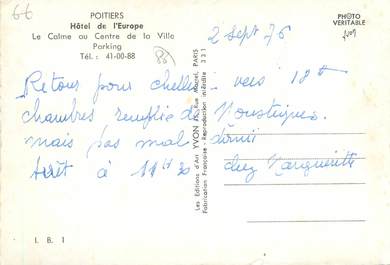 66
POITIERS
Hôtel de l'Europe
Le Calme au Centre de la Ville
Parking
Tél. : 41-00-88
86
PHOTO
VÉRITABLE
2 Sept 76
Retour pour chelles vers 18H
chambres remplie de Moustiques
mais pas mal dormi
arrêt à 11H30 chez Marguerite
Les Editions d'Art YVON PARIS
Fabrication Française - Reproduction interdite 331
I. B. 1